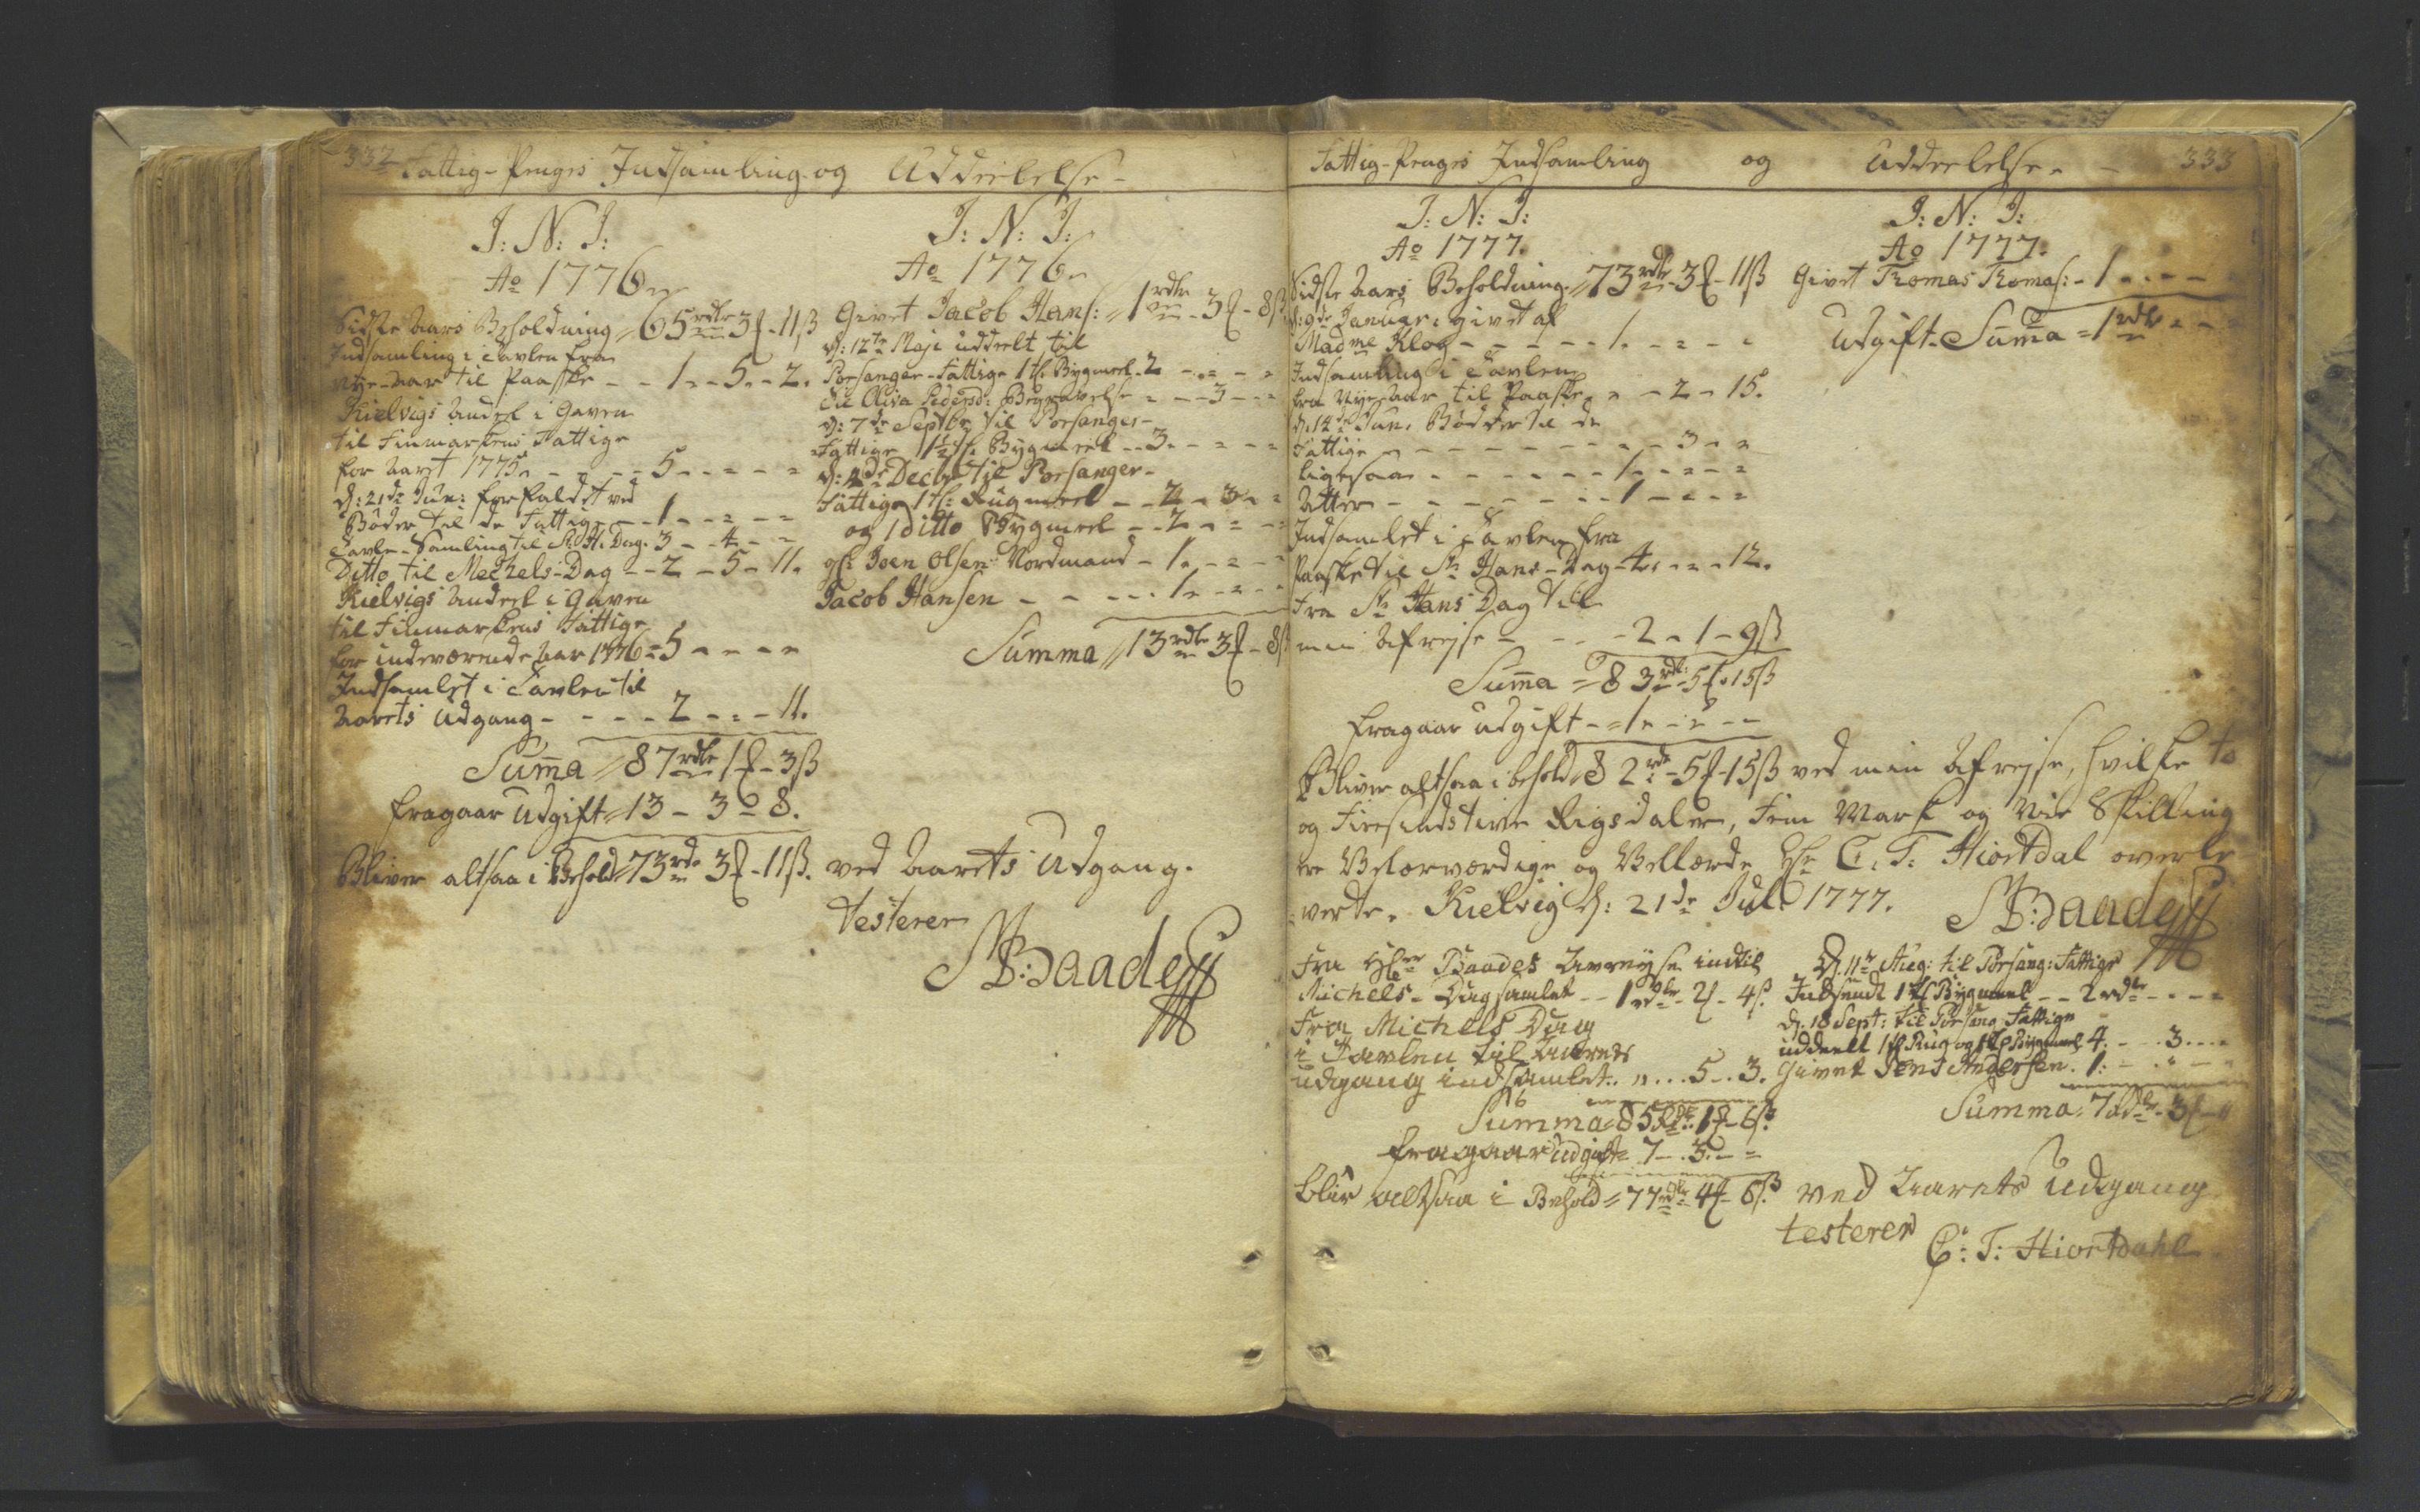 332 Fattig-Penges Indsamling og Uddeelelse
J: N: J:
Ao 1776
Sidste Aars Beholdning 65 rdlr 3 ₰ - 11 ß
Indsamling i Tavlen fra
Nye-Aar til Paaske - - 1 - 5 - 2.
Kielvigs Andeel i Gaven
til Finmarkens Fattige
for Aaret 1775 - - - 5 - - -
d: 21de Jun: forfaldet ved
Bøder til de Fattige - - 1 - - -
Tavle-Samling til St. H. Dag. 3 - 4 - -
Ditto til Mechels-Dag - - 2 - 5 - 11.
Kielvigs Andeel i Gaven
til Finmarkens Fattige
for indeværende Aar 1776 = 5 - - -
Indsamlet i Tavlen til
Aarets Udgang - - - - 2 - = - 11.
Suma 87 rdlr 1 ₰ - 3 ß
fragaar Udgift 13 - 3 - 8.
Bliver altsaa i Behold 73 rdr 3 ₰ - 11 ß. ved Aarets Udgang.
J: N: J:
Ao 1776
Givet Jacob Hans: 1 rdlr - 3 ₰ - 8 ß
d: 12te Maji uddelt til
Porsanger-Fattige 1 t: Bygmeel - 2 - - -
til Oliva Pedersd: Begravelse - - 3 - -
d: 7de Septbr til Porsanger-
Fattige 1½ t: Bygmeel - - 3 - - -
d: 2de Decbr til Porsanger-
Fattige 1 t: Rugmeel - - 2 - 3 - -
og 1 ditto Bygmeel - - 2 - - -
Joen Olsen Nordmand - 1 - - -
Jacob Hansen - - - - 1 - - -
Summa 13 rdlr 3 ₰ - 8 ß
testerer
MB: Baade
Fattig-Penges Indsamling og Uddeelelse 333
J: N: J:
Ao 1777.
Sidste Aars Beholdning 73 rdlr 3 ₰ - 11 ß
d: 9de Januar: givet af
Madme Klog - - - - - 1 - - -
Indsamling i Tavlen
fra Nye-Aar til Paaske - - 2 - 15.
d. 12te Jun. Bødder til de
Fattige - - - - - - 3 - -
ligesaa - - - - - 1 - - -
Atter - - - - - - 1 - - -
Indsamlet i Tavlen fra
Paaske til St. Hans-Dag - 4 - - - 12.
Fra St. Hans Dag til
min Afrejse - - - 2 - 1 - 9 ß
Suma = 83 rdl: 5 ₰ - 15 ß
fragaar Udgift - = 1 - - -
J: N: J:
Ao 1777.
Givet Thomas Thomas: - 1 - - -
Udgift-Suma = 1 rdlr - -
Bliver altsaa i behold 82 rdr - 5 ₰ - 15 ß ved min Afrejse, hvilke to
og Firesindstive Rigsdaler, Fem Mark og Skilling
ere Velærværdige og Vellærde Hr. C. T. Hiortdal overle
verte. Kielvig d: 21de Jul. 1777. MB: Baade
Fra Hr. Baades Avreyse indtil
Michels-Dag samlet - - 1 rdlr - 2 ₰ - 4 ß
Fra Michels Dag
i Tavlen til Aarets
udgang indsamlet . . . . 5 - . 3.
Summa 85 rdlr. 1 ₰ - 6 ß
fragaar udgift 7 - . 3. - -
blir altsaa i Behold = 77 rdlr - 4 ₰ - 6 ß ved Aarets udgang
D. 11te Aug: til Porsang: Fattige
Indsendt 1 t. Bygmeel - - 2 rdlr - - -
d. 18 Sept: til Porsang Fattige
uddeelt 1 t Rug og 1 t Bygmeel 4. - - 3 . . .
Givet Jens Andersen. 1. - - -
Summa 7 rdlr. 3 ₰ -
testerer
C: T: Hiortdahl